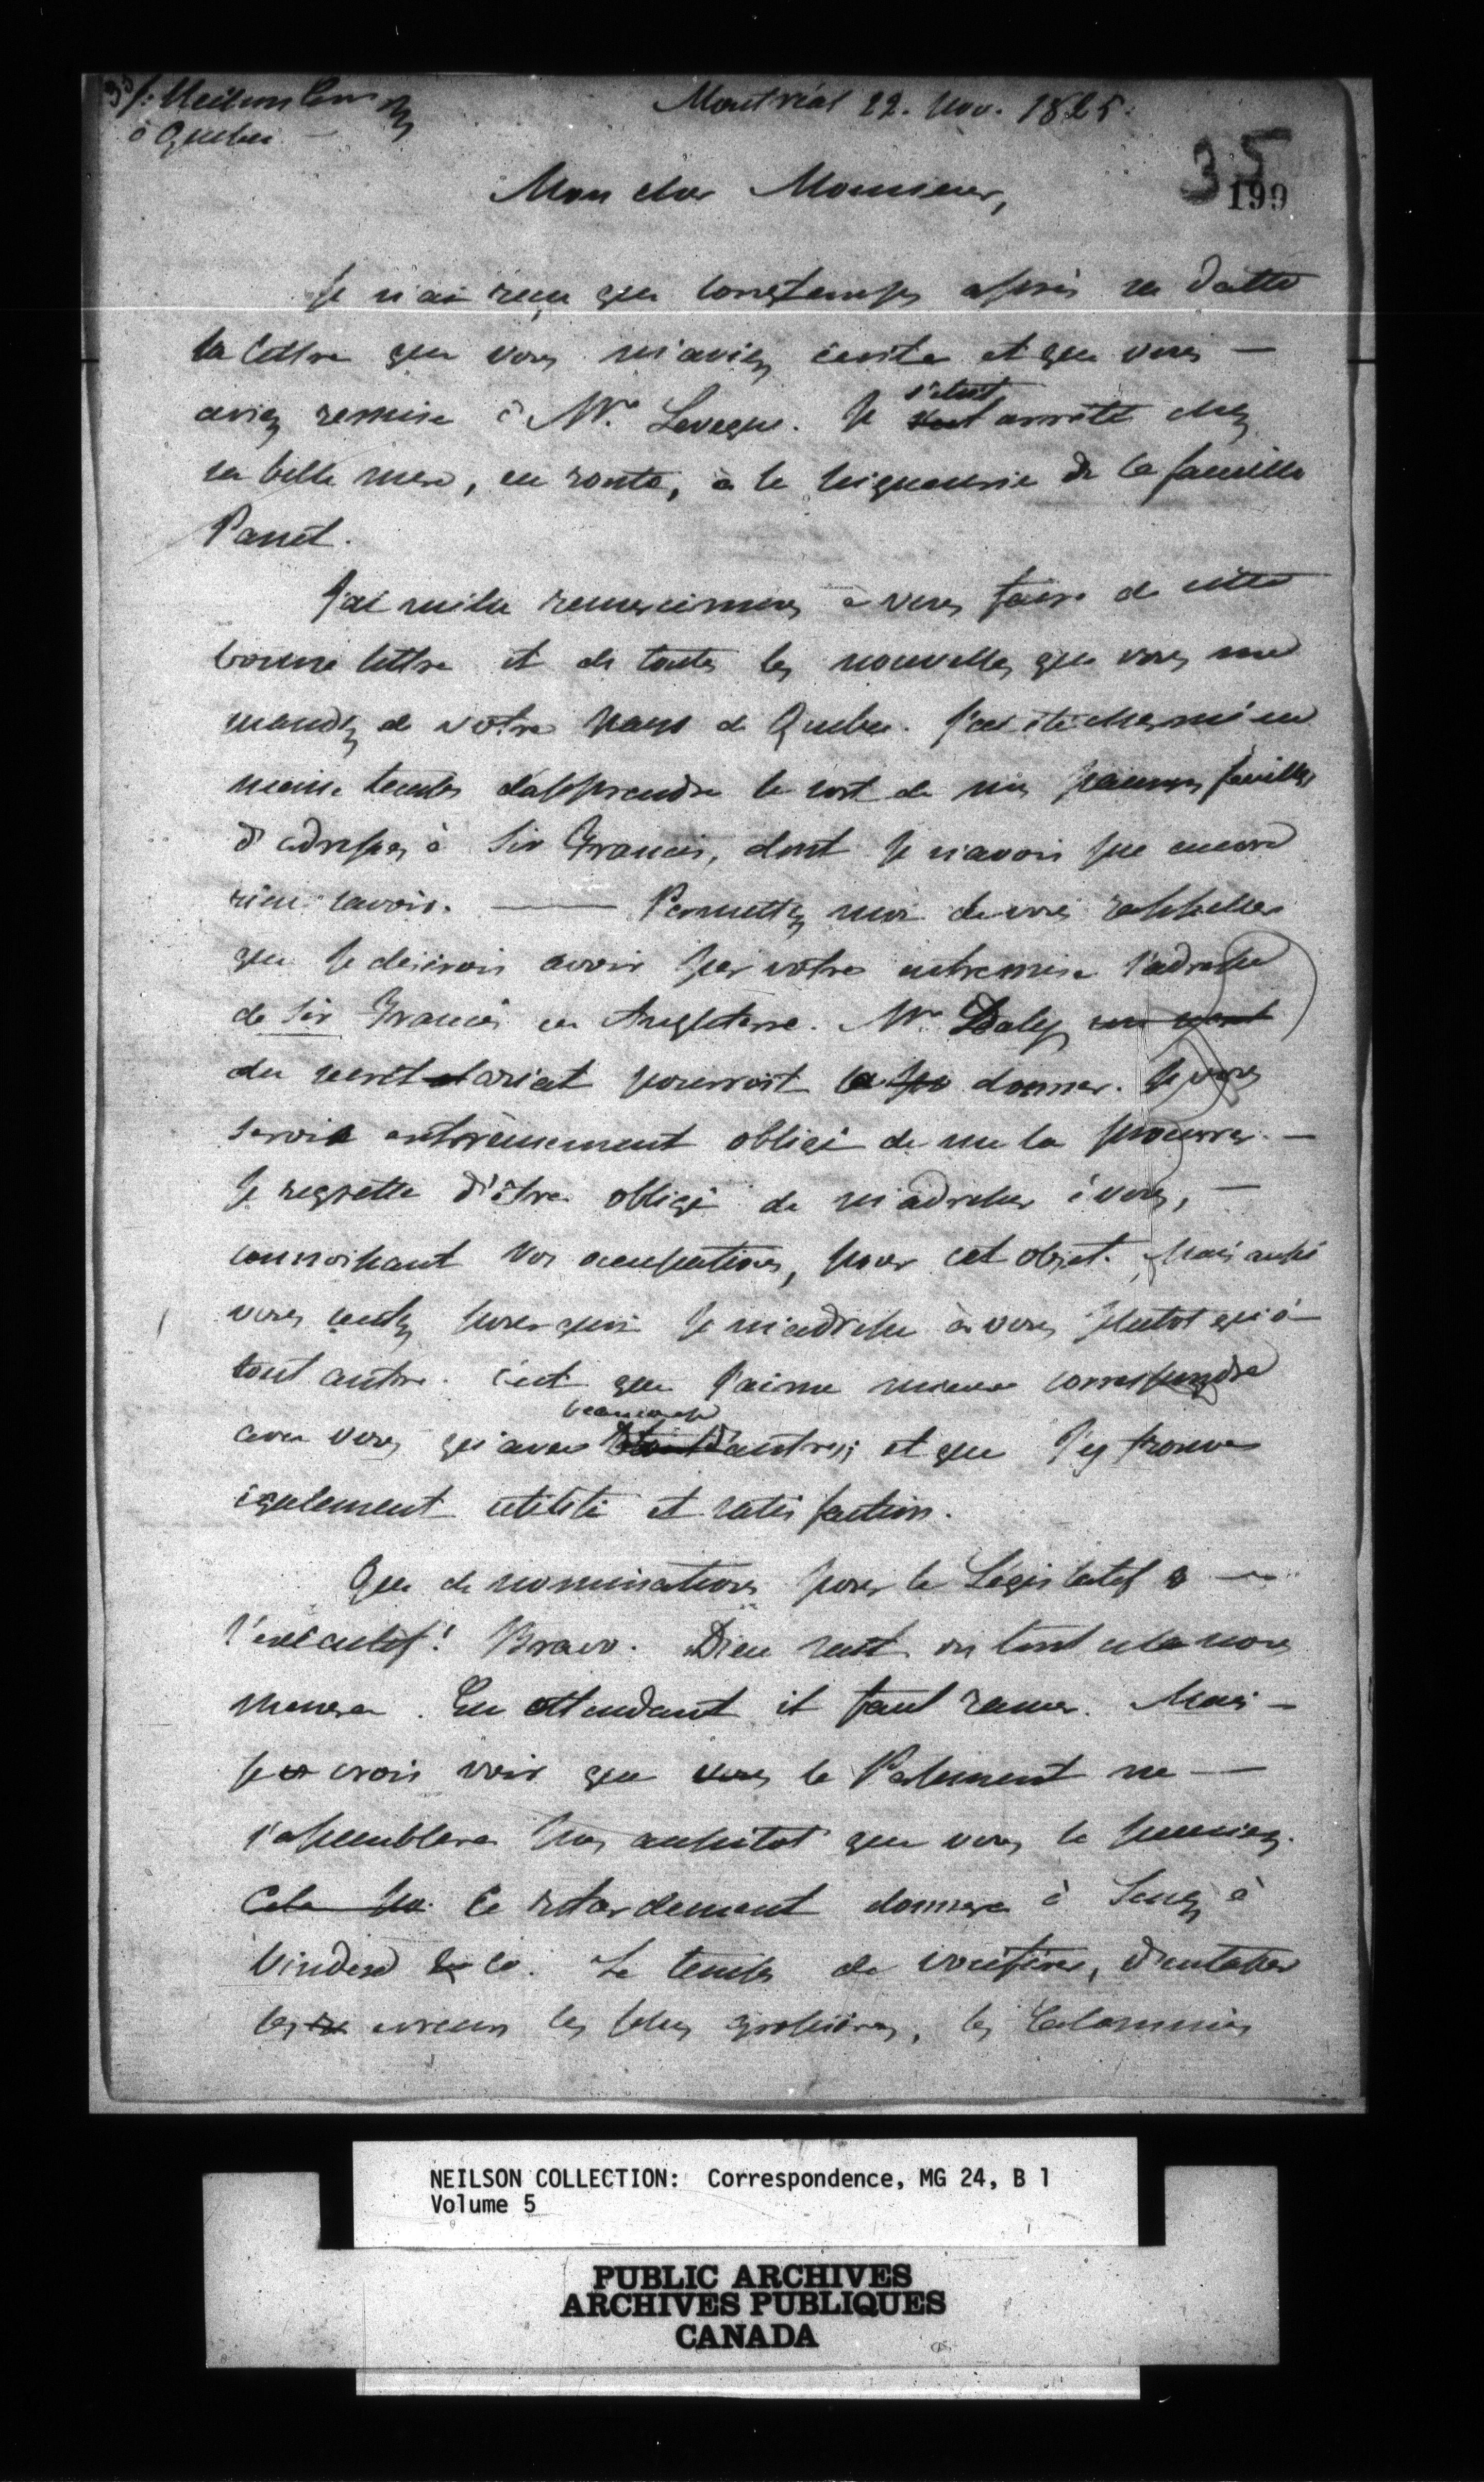 J: Neilson
à Quebec
Montréal 22. Nov. 1825.
35
199
Mon cher Monsieur,
Je n'ai reçu que longtemps après sa datte
la lettre que vous m'aviez écrite et que vous —
aviez remise à Mr. Leveque. Il s'étoit arrêté chez
sa belle mere, en route, à la seigneurie de la famille
Panet.
J'ai mille remercimens à vous faire de cette
bonne lettre et de toutes les nouvelles que vous me
mandez de votre pays de Quebec. J'ai été charmé en
meme temps d'apprendre le sort de mes pauvres feuilles
d'adresses à Sir Francis, dont je n'avois pu encore
rien savoir. — Permettez moi de vous rappeller
que je désirois avoir par votre entremise l'adresse
de Sir Francis en Angleterre. Mr. Daly
du secrétariat pourroit la donner. Je vous
serois extrèmement obligé de me la procurer. —
Je regrette d'être obligé de m'adresser à vous, —
connoissant vos occupations, pour cet objet. Mais aussi
vous sentez pourquoi je m'adresse à vous plutot qu'à
tout autre. c'est que j'aime mieux correspondre
avec vous qu'avec beaucoup d'autres; et que j'y trouve
également utilité et satisfaction.
Que de nominations pour le Législatif &
l'exécutif! Bravo. Dieu sait où tout cela nous
menera. En attendant il faut ramer. Mais —
je crois voir que le Parlement ne —
s'assemblera pas aussitot que vous le pensiez.
Ce retardement donnera à
Vindex & Co. Le temps de vociférer, d'entasser
les erreurs les plus grossières, les Calomnies
NEILSON COLLECTION: Correspondence, MG 24, B 1
Volume 5
PUBLIC ARCHIVES
ARCHIVES PUBLIQUES
CANADA